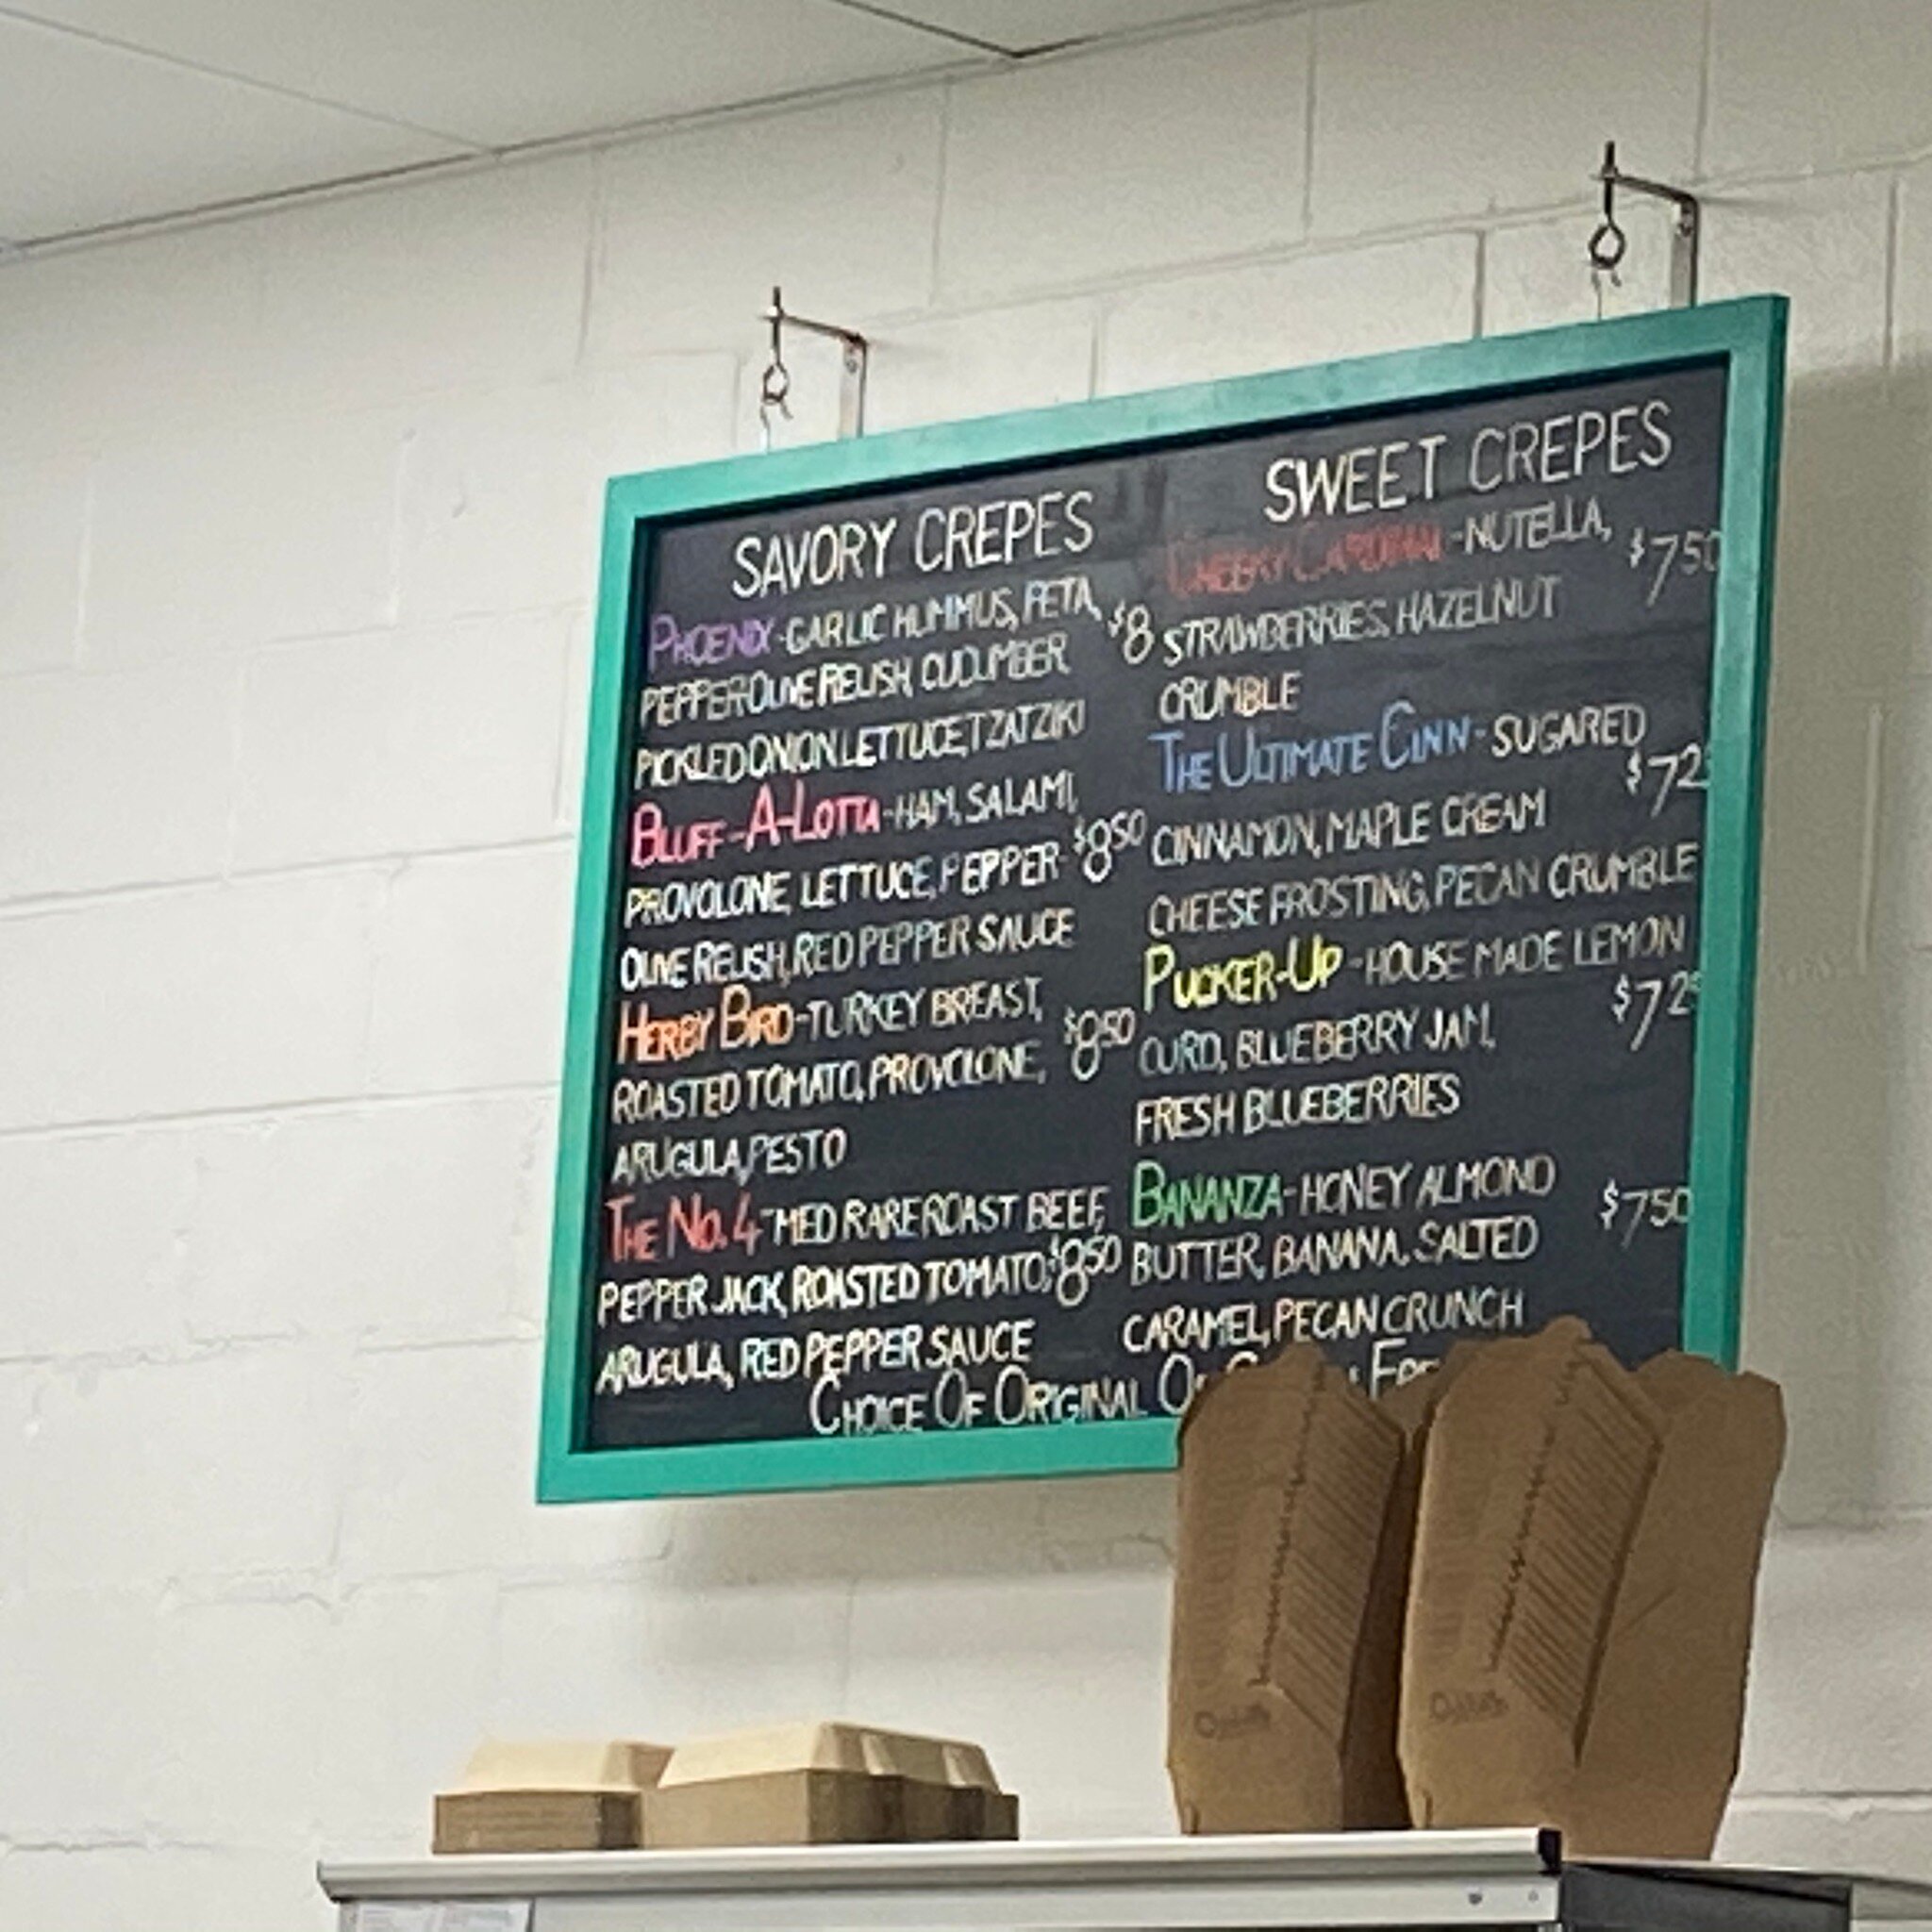 SAVORY CREPES
PHOENIX - GARLIC HUMMUS, FETA, $8
PEPPER-OLIVE RELISH, CUCUMBER
PICKLED ONION, LETTUCE, TZATZIKI
BLUFF-A-LOTTA - HAM, SALAMI,
PROVOLONE, LETTUCE, PEPPER- $8.50
OLIVE RELISH, RED PEPPER SAUCE
HERBY BIRD - TURKEY BREAST,
ROASTED TOMATO, PROVOLONE, $8.50
ARUGULA, PESTO
THE NO. 4 - MED RARE ROAST BEEF,
PEPPER JACK, ROASTED TOMATO, $8.50
ARUGULA, RED PEPPER SAUCE
SWEET CREPES
CHEEKY CARDINAL - NUTELLA, $7.50
STRAWBERRIES, HAZELNUT
CRUMBLE
THE ULTIMATE CINN - SUGARED
CINNAMON, MAPLE CREAM
CHEESE FROSTING, PECAN CRUMBLE
PUCKER-UP - HOUSE MADE LEMON
CURD, BLUEBERRY JAM,
FRESH BLUEBERRIES
BANANZA - HONEY ALMOND $7.50
BUTTER, BANANA, SALTED
CARAMEL, PECAN CRUNCH
CHOICE OF ORIGINAL